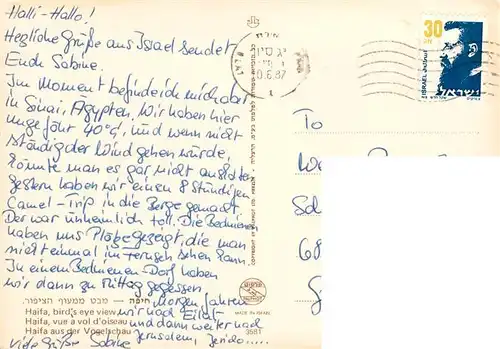 Halli-Hallo!
Herzliche Grüße aus Israel sendet
Eude Sabine.
Im Moment befinde ich mich aber
in Sinai, Ägypten. Wir haben hier
ungefähr 40°C, und wenn nicht
ständig der Wind gehen würde,
könnte man es gar nicht aushalten
Gestern haben wir einen 8 stündigen
Camel-Trip in die Berge gemacht.
Der war unheimlich toll. Die Beduinen
haben uns Plätze gezeigt, die man
nicht einmal im Fernseh sehen kann.
In einem Beduinen-Dorf haben
wir dann zu Mittag gegessen.
Morgen fahren
wir nach Eilat
und dann weiter nach
Jerusalem, Jericho.....
Viele Grüße Sabine
חיפה — מבט ממעוף הציפור.
Haifa, bird's eye view
Haifa, vue a vol d'oiseau
Haifa aus der Vogelschau
3681
MADE IN ISRAEL
PALPHOT
30
ISRAEL
ישראל
6.87
To
68